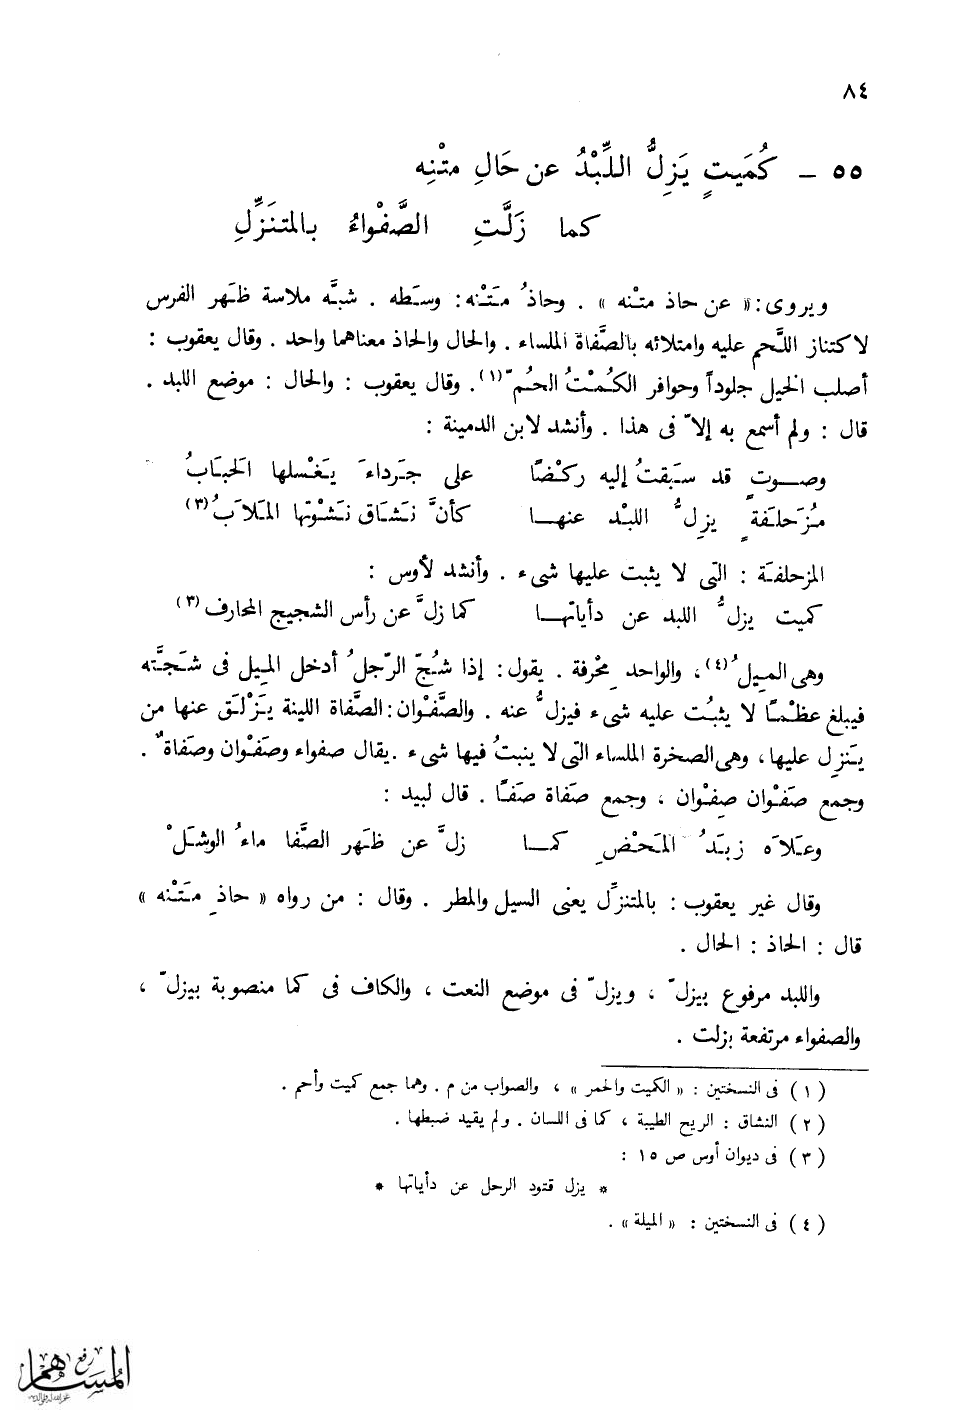 ٨٤
٥٥ – كُمَيتٍ يَزِلُّ اللِّبْدُ عن حَالِ متْنِه
كما زَلَّتِ الصَّفْواءُ بالمتنَزِّلِ
ويروى: « عن حاذ متْنه » . وحاذُ مَتْنه: وسَطه . شبَّه ملاسة ظَهر الفرس
لاكتناز اللَّحم عليه وامتلائه بالصَّفاة الملساء . والحال والحاذ معناهما واحد . وقال يعقوب :
أصلب الخيل جلوداً وحوافر الكُمْتُ الحُمّ (١) . وقال يعقوب : والحال : موضع اللبد .
قال : ولم أسمع به إلاّ فى هذا . وأنشد لابن الدمينة :
وصــوتٍ قد سَبَقتُ إليه ركْضًا على جَرداءَ يَغْسلها الحَبَابُ
مُزَحلَفَةٍ يزِلُّ اللبْد عنهــا كأنَّ نَشَاق نَشْوتها المَلَابُ (٣)
المزحلفَة : التى لا يثبت عليها شىء . وأنشد لأوس :
كميت يزلُّ اللبد عن دأياتهــا كما زلَّ عن رأس الشجيج المحارف (٣)
وهى المِيلُ (٤) ، والواحد مِحْرفة . يقول: إذا شُجّ الرّجلُ أدخل المِيل فى شَجَّته
فيبلغ عظْمًا لا يثبُت عليه شىء فيزلُّ عنه . والصَّفْوان: الصَّفاة اللينة يَزْلَق عنها من
يَنزِل عليها ، وهى الصخرة الملساء التى لا ينبتُ فيها شىء . يقال صفواء وصَفْوان وصَفاةٌ .
وجمع صَفْوان صِفْوان ، وجمع صَفاة صَفًا . قال لبيد :
وعَلاَه زبَدُ المَحْضِ كمــا زلَّ عن ظَهر الصَّفا ماءُ الوشَلْ
وقال غير يعقوب : بالمتنزِّل يعنى السيل والمطر . وقال : من رواه « حاذِ مَتْنه »
قال : الحاذ : الحال .
واللبد مرفوع بيزلّ ، ويزلّ فى موضع النعت ، والكاف فى كما منصوبة بيزلّ ،
والصفواء مرتفعة بزلت .
( ١ ) فى النسختين : « الكميت والحمر » ، والصواب من م . وهما جمع كميت وأحم .
( ٢ ) النشاق : الريح الطيبة ، كما فى اللسان . ولم يقيد ضبطها .
( ٣ ) فى ديوان أوس ص ١٥ :
* يزل قتود الرحل عن دأياتها *
( ٤ ) فى النسختين : « الميلة » .